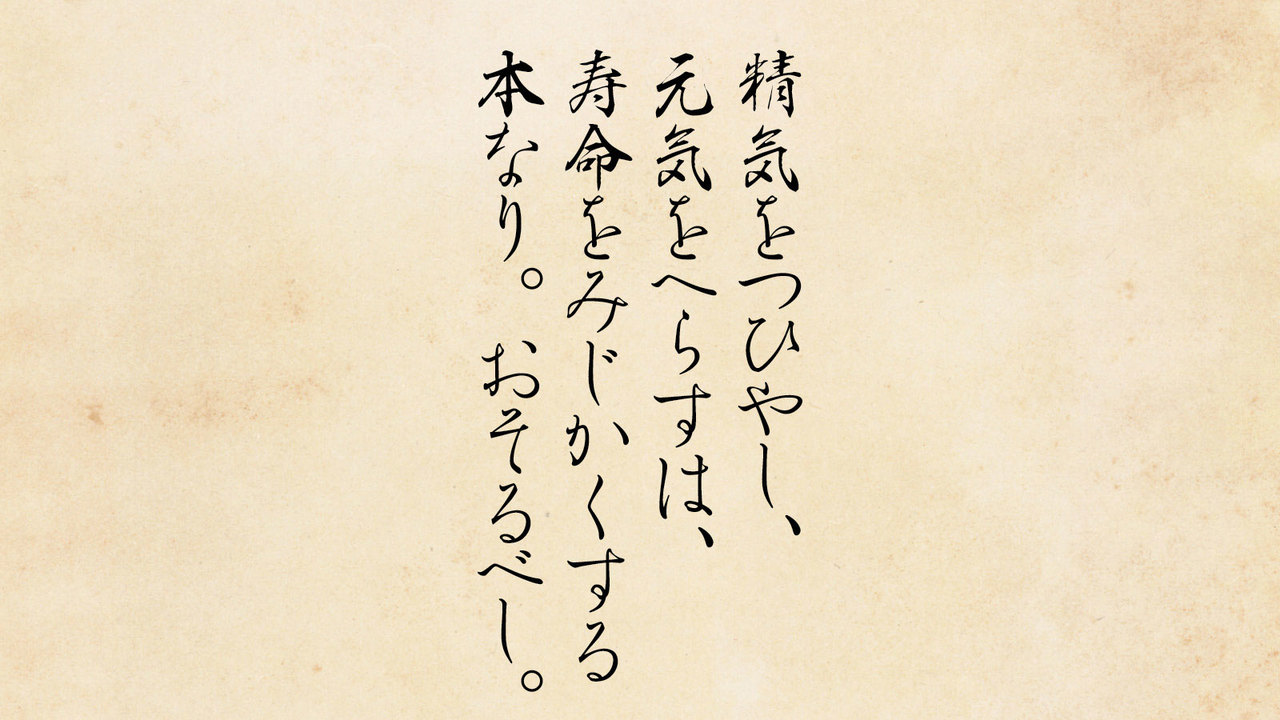 精気をつひやし、
元気をへらすは、
寿命をみじかくする
本なり。おそるべし。